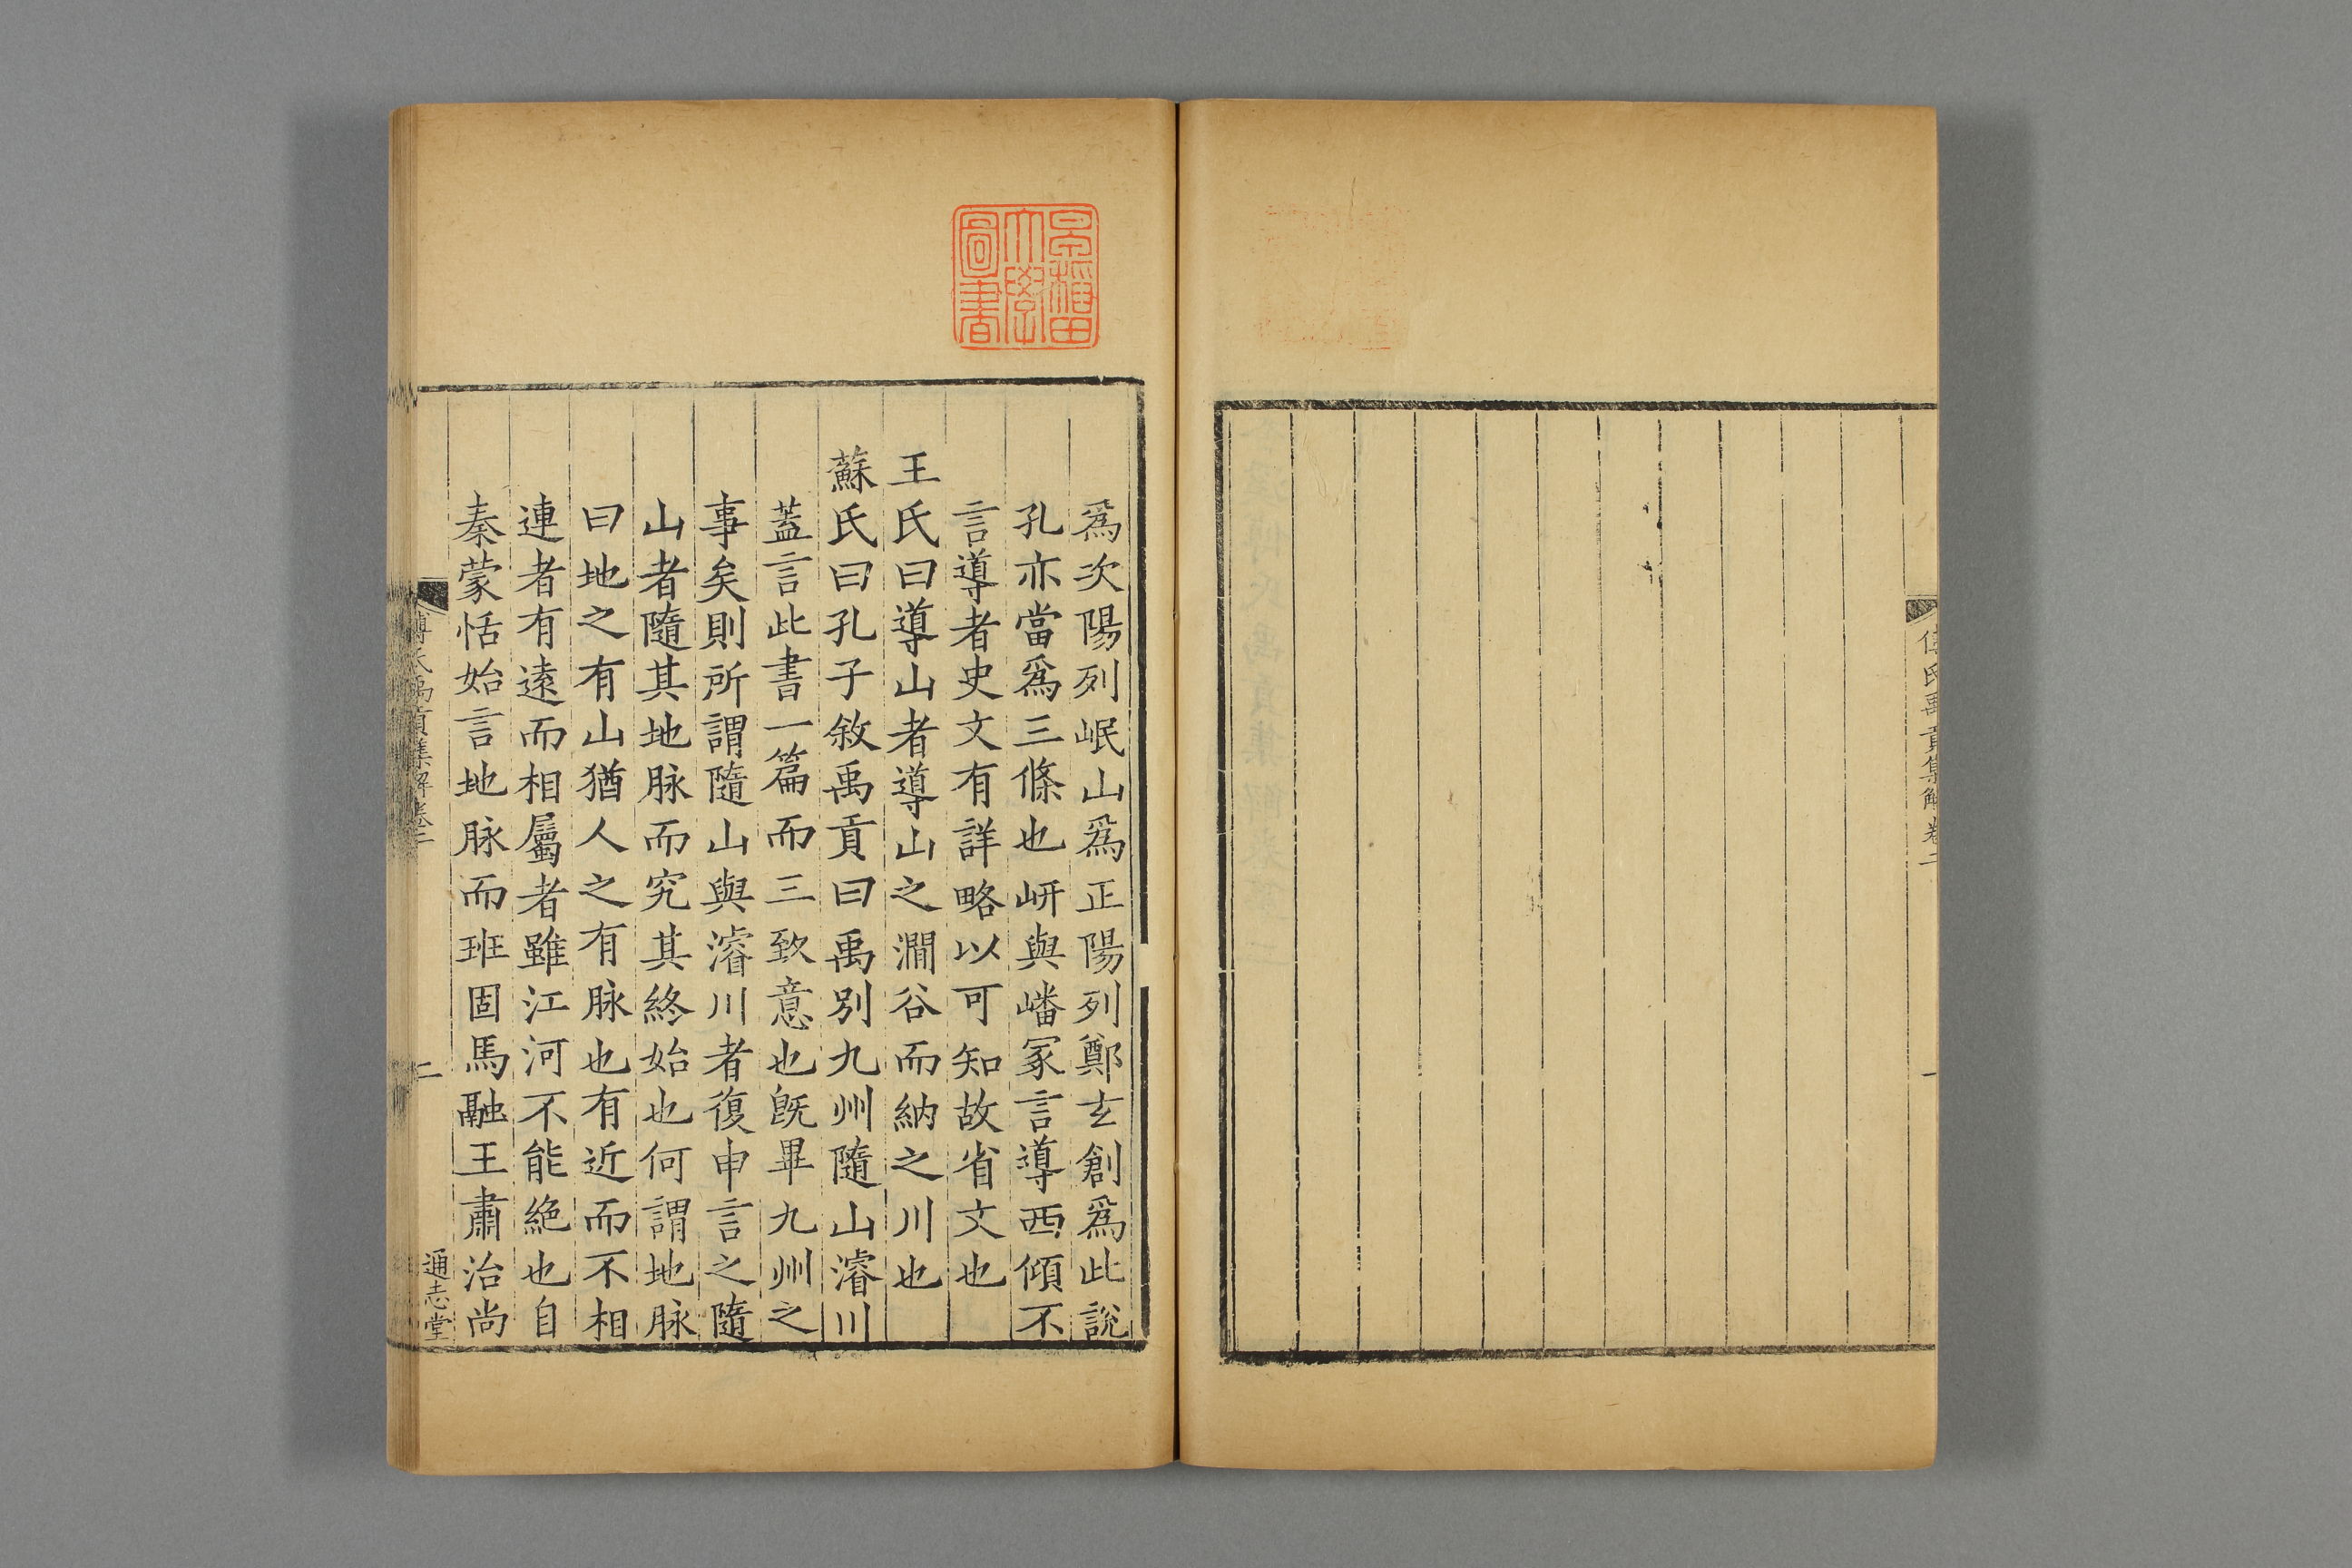 傅氏禹貢集解卷二
一
早稻田
大學
圖書
爲次陽列岷山爲正陽列鄭玄創爲此說
孔亦當爲三條也岍與嶓冢言導西傾不
言導者史文有詳略以可知故省文也
王氏曰導山者導山之澗谷而納之川也
蘇氏曰孔子敘禹貢曰禹別九州隨山濬川
蓋言此書一篇而三致意也旣畢九州之
事矣則所謂隨山與濬川者復申言之隨
山者隨其地脉而究其終始也何謂地脉
曰地之有山猶人之有脉也有近而不相
連者有遠而相屬者雖江河不能絕也自
秦蒙恬始言地脉而班固馬融王肅治尚
傅氏禹貢集解卷二
二
通志堂